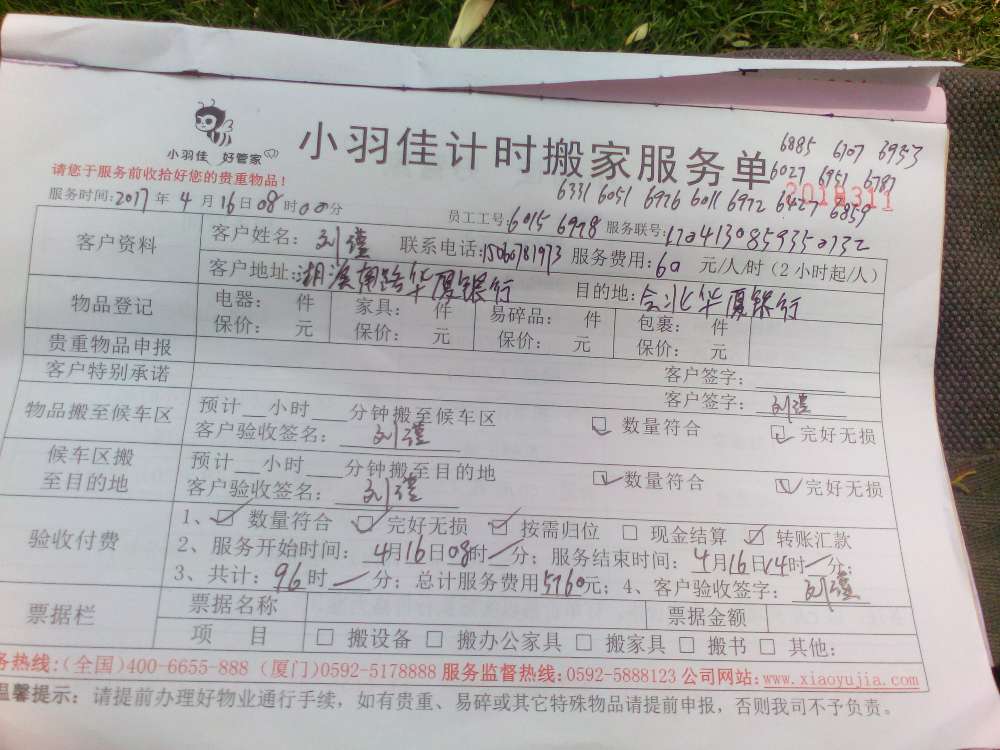 小羽佳 好管家
小羽佳计时搬家服务单
6885 6107 6953
6027 6951 6787
6331 6051 6926 6011 6972 6427 6859
2018311
请您于服务前收拾好您的贵重物品！
服务时间：2017年4月16日08时00分
员工工号：6015 6928 服务联号：
客户资料
客户姓名：刘瑾 联系电话：15060781973 服务费用：60元/人/时（2小时起/人）
客户地址：湖滨南路华厦银行 目的地：会北华厦银行
物品登记
电器： 件 家具： 件 易碎品： 件 包裹： 件
保价： 元 保价： 元 保价： 元 保价： 元
贵重物品申报
客户签字：
客户特别承诺
客户签字：刘瑾
物品搬至候车区
预计__小时___分钟搬至候车区
客户验收签名：刘瑾 数量符合 完好无损
候车区搬
至目的地
预计__小时___分钟搬至目的地
客户验收签名：刘瑾 数量符合 完好无损
验收付费
1、☑数量符合 ☑完好无损 ☑按需归位 □现金结算 ☑转账汇款
2、服务开始时间：4月16日08时—分；服务结束时间：4月16日14时—分；
3、共计：96时—分；总计服务费用5760元；4、客户验收签字：刘瑾
票据栏
票据名称 票据金额
项 目 □搬设备 □搬办公家具 □搬家具 □搬书 □其他：
务热线：（全国）400-6655-888（厦门）0592-5178888 服务监督热线：0592-5888123 公司网站：www.xiaoyujia.com
温馨提示：请提前办理好物业通行手续，如有贵重、易碎或其它特殊物品请提前申报，否则我司不予负责。